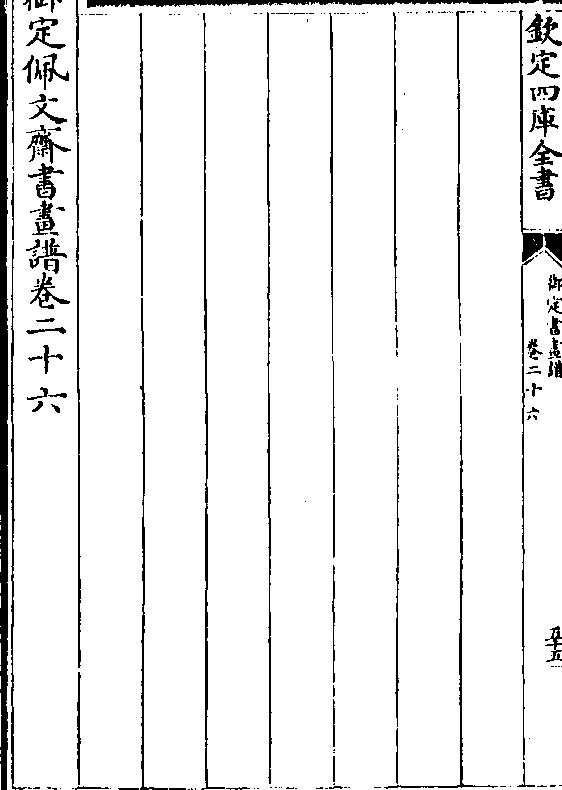 欽定四庫全書
御定書畫譜
卷二十六
五十五
御定佩文齋書畫譜卷二十六